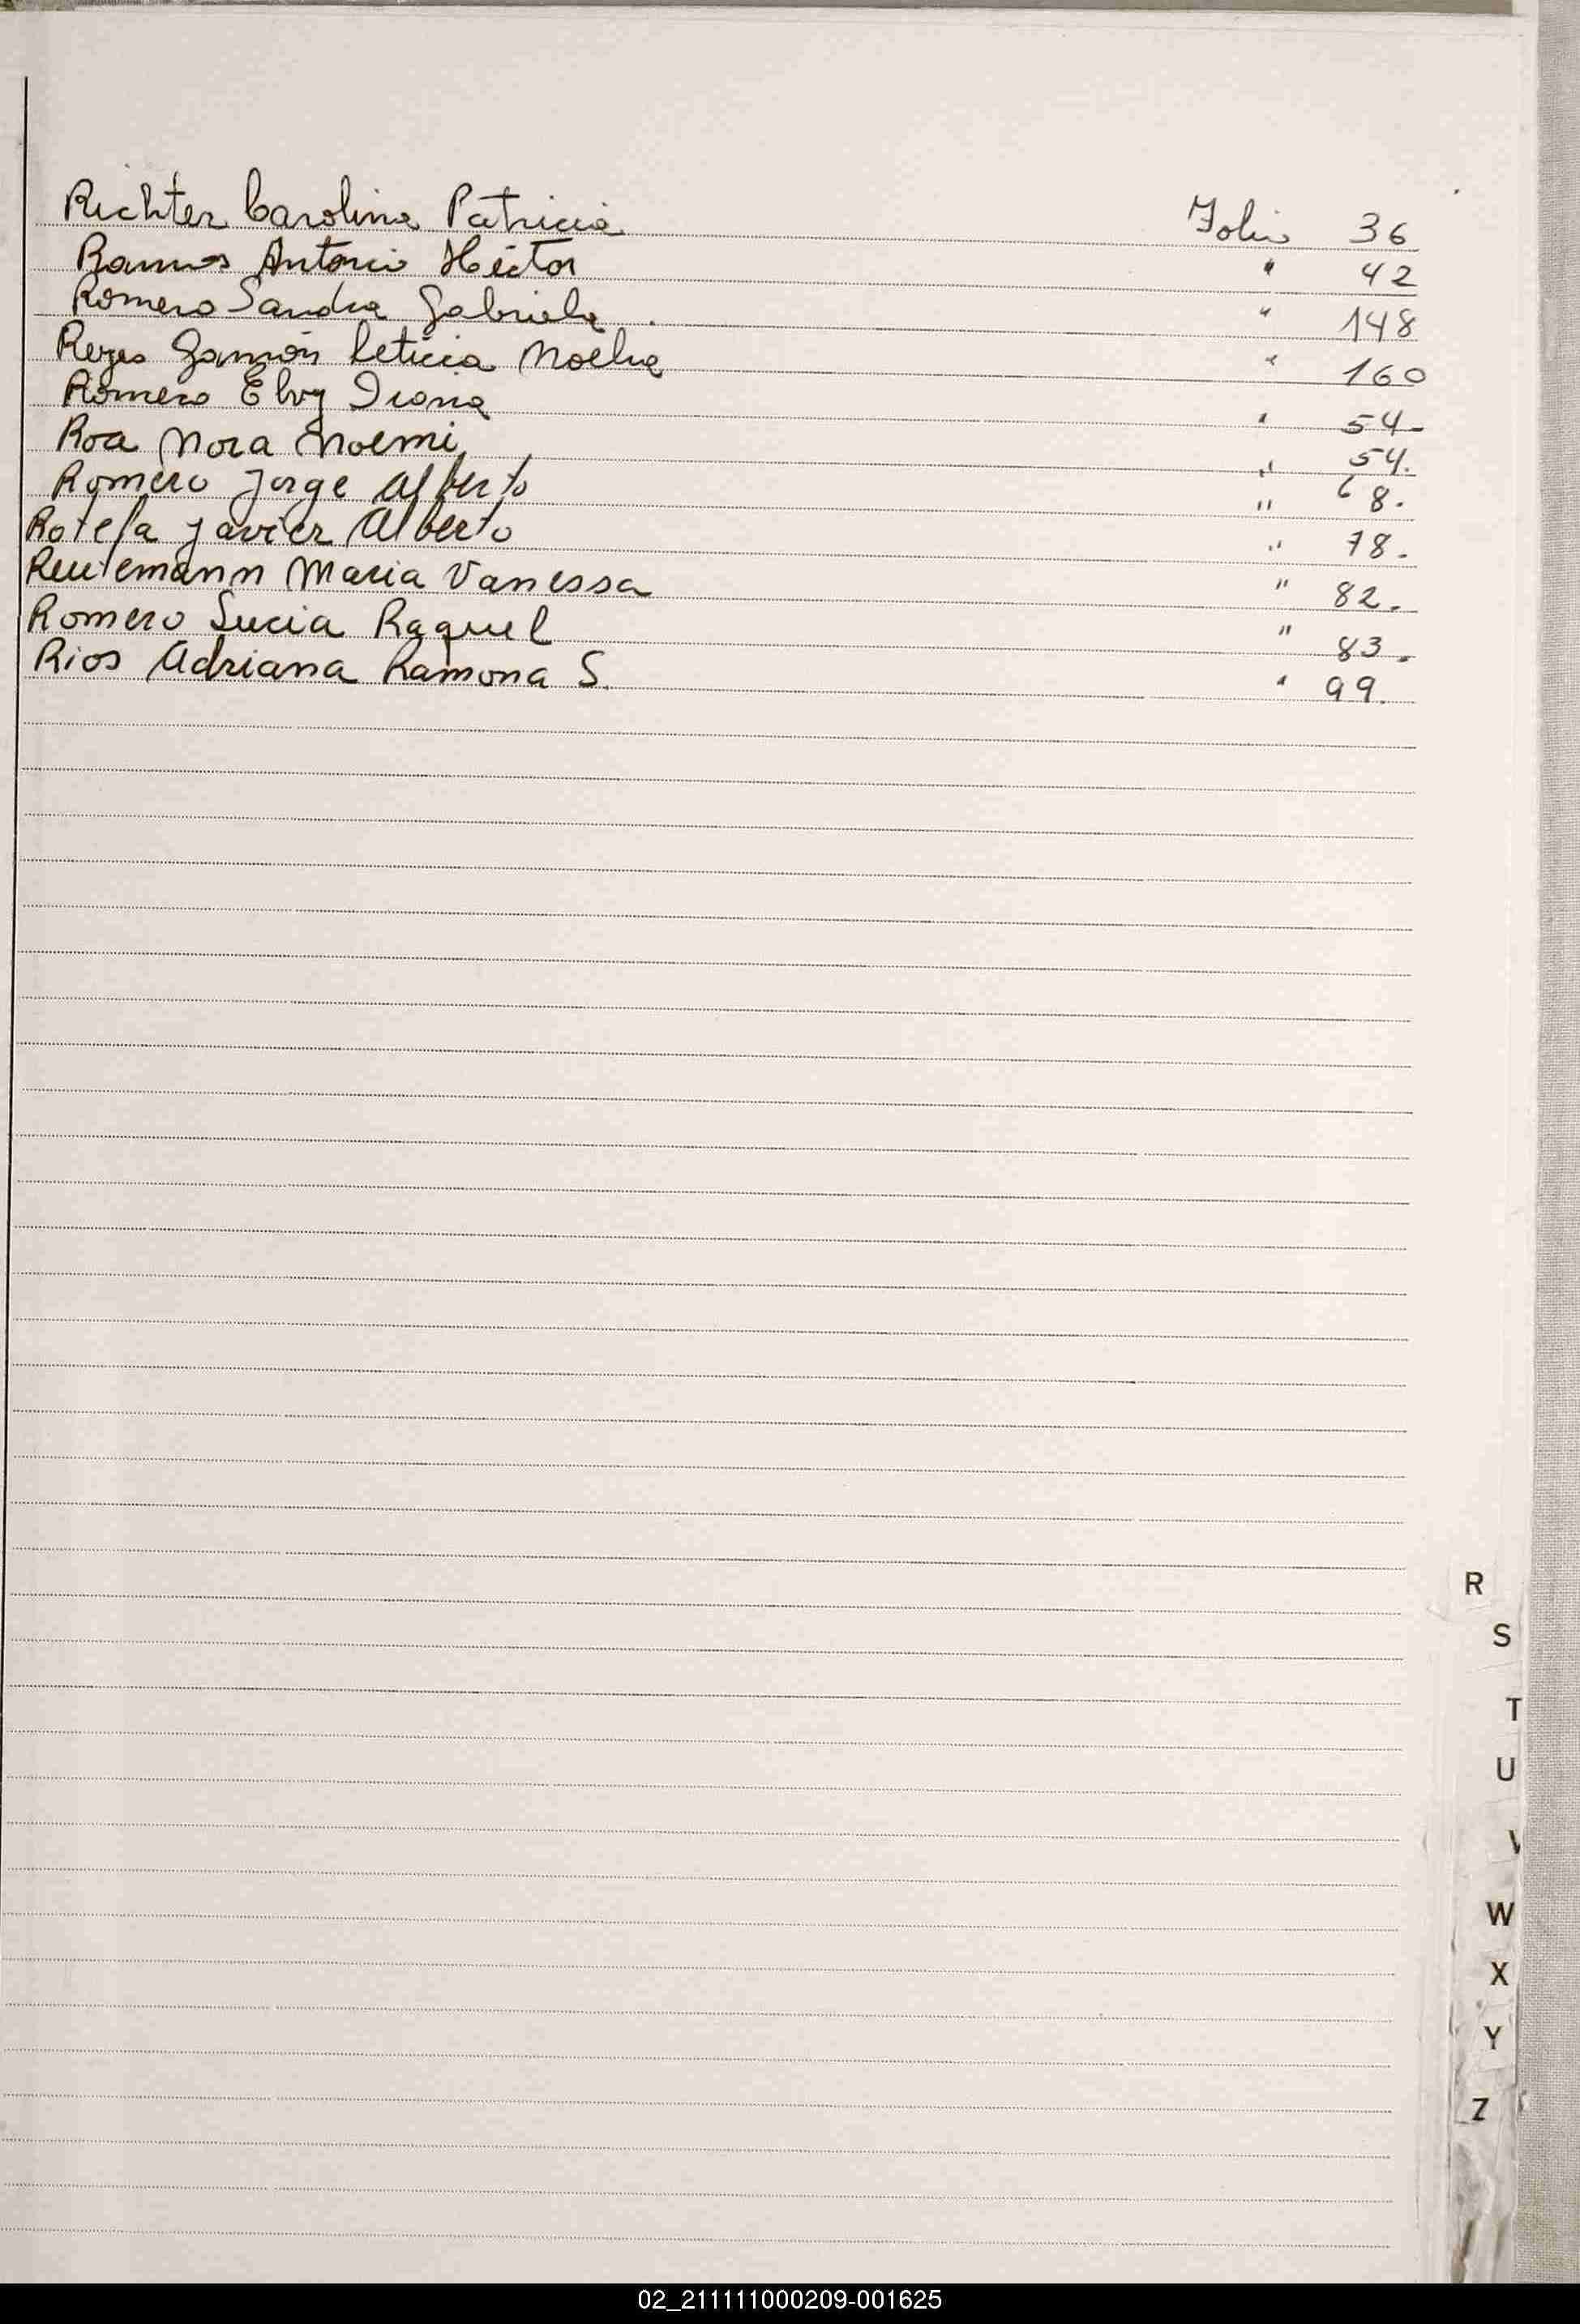 Richter Carolina Patricia Folio 36
Ramos Antonio Héctor " 42
Romero Sandra Gabriela . " 148
Reyes Leticia Noelia " 160
Romero Elvy " 54-
Roa Nora Noemi " 54.
Romero Jorge Alberto " 68.
Rotela Javier Alberto " 78.
Reutemann Maria Vanessa " 82.
Romero Lucia Raquel " 83.
Rios Adriana Ramona S. " 99.
R
S
T
U
V
W
X
Y
Z
02_211111000209-001625